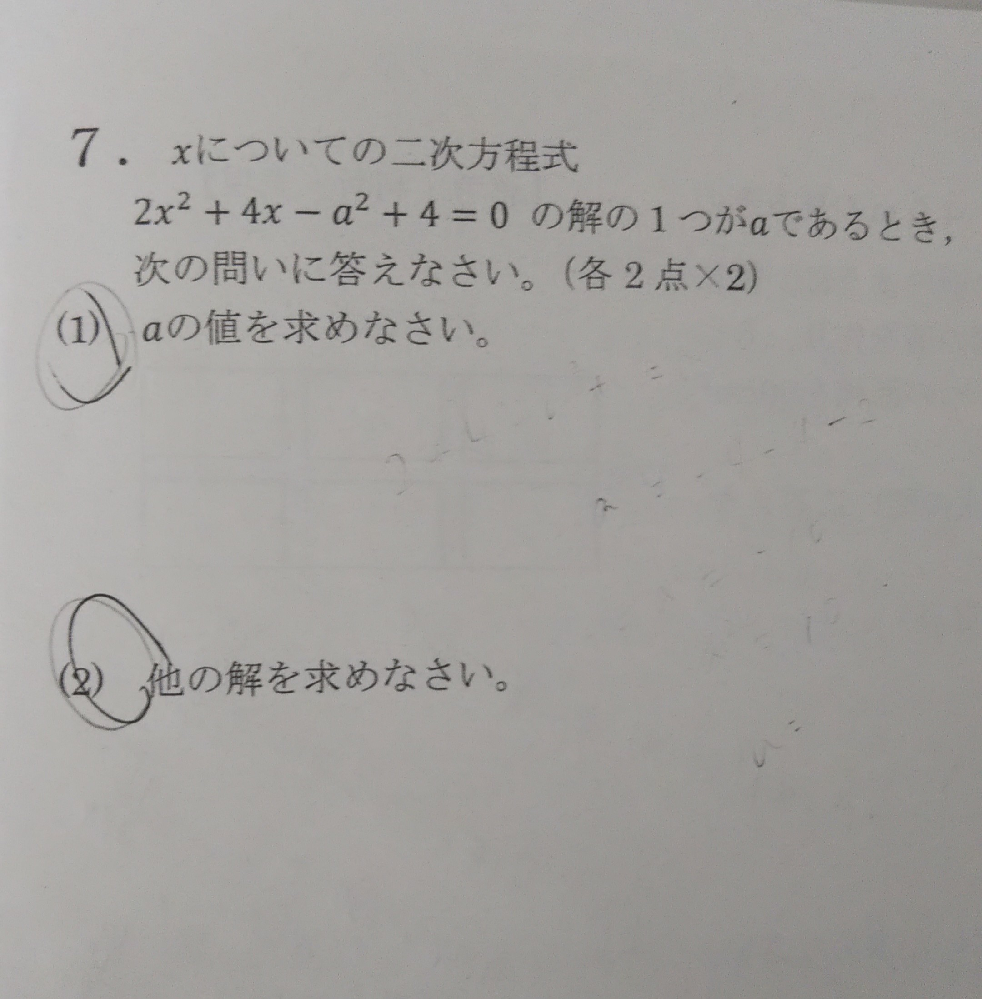 7. xについての二次方程式
2x² + 4x − a² + 4 = 0 の解の1つがaであるとき,
次の問いに答えなさい。(各2点×2)
(1) aの値を求めなさい。
(2) 他の解を求めなさい。